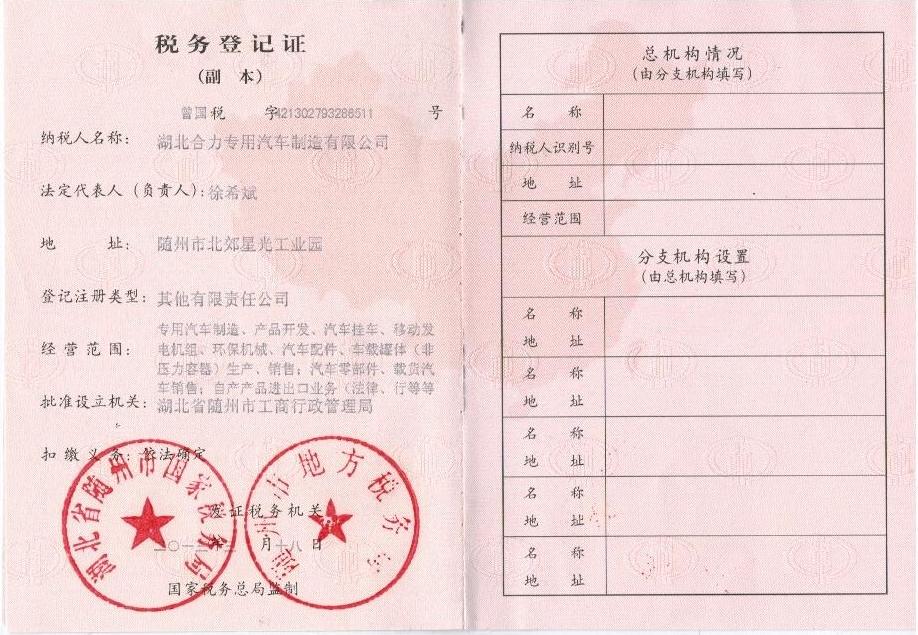 税务登记证
(副 本)
曾国税 字421302793286511 号
纳税人名称: 湖北合力专用汽车制造有限公司
法定代表人(负责人): 徐希斌
地 址: 随州市北郊星光工业园
登记注册类型: 其他有限责任公司
经营范围: 专用汽车制造、产品开发、汽车挂车、移动发
电机组、环保机械、汽车配件、车载罐体(非
压力容器)生产、销售;汽车零部件、载货汽
车销售;自产产品进出口业务(法律、行等等
批准设立机关: 湖北省随州市工商行政管理局
扣缴义务: 依法确定
湖北省随州市国家税务局
随州市地方税务局
发证税务机关
二〇一三年 月十八日
国家税务总局监制
总机构情况
(由分支机构填写)
名 称
纳税人识别号
地 址
经营范围
分支机构设置
(由总机构填写)
名 称
地 址
名 称
地 址
名 称
地 址
名 称
地 址
名 称
地 址